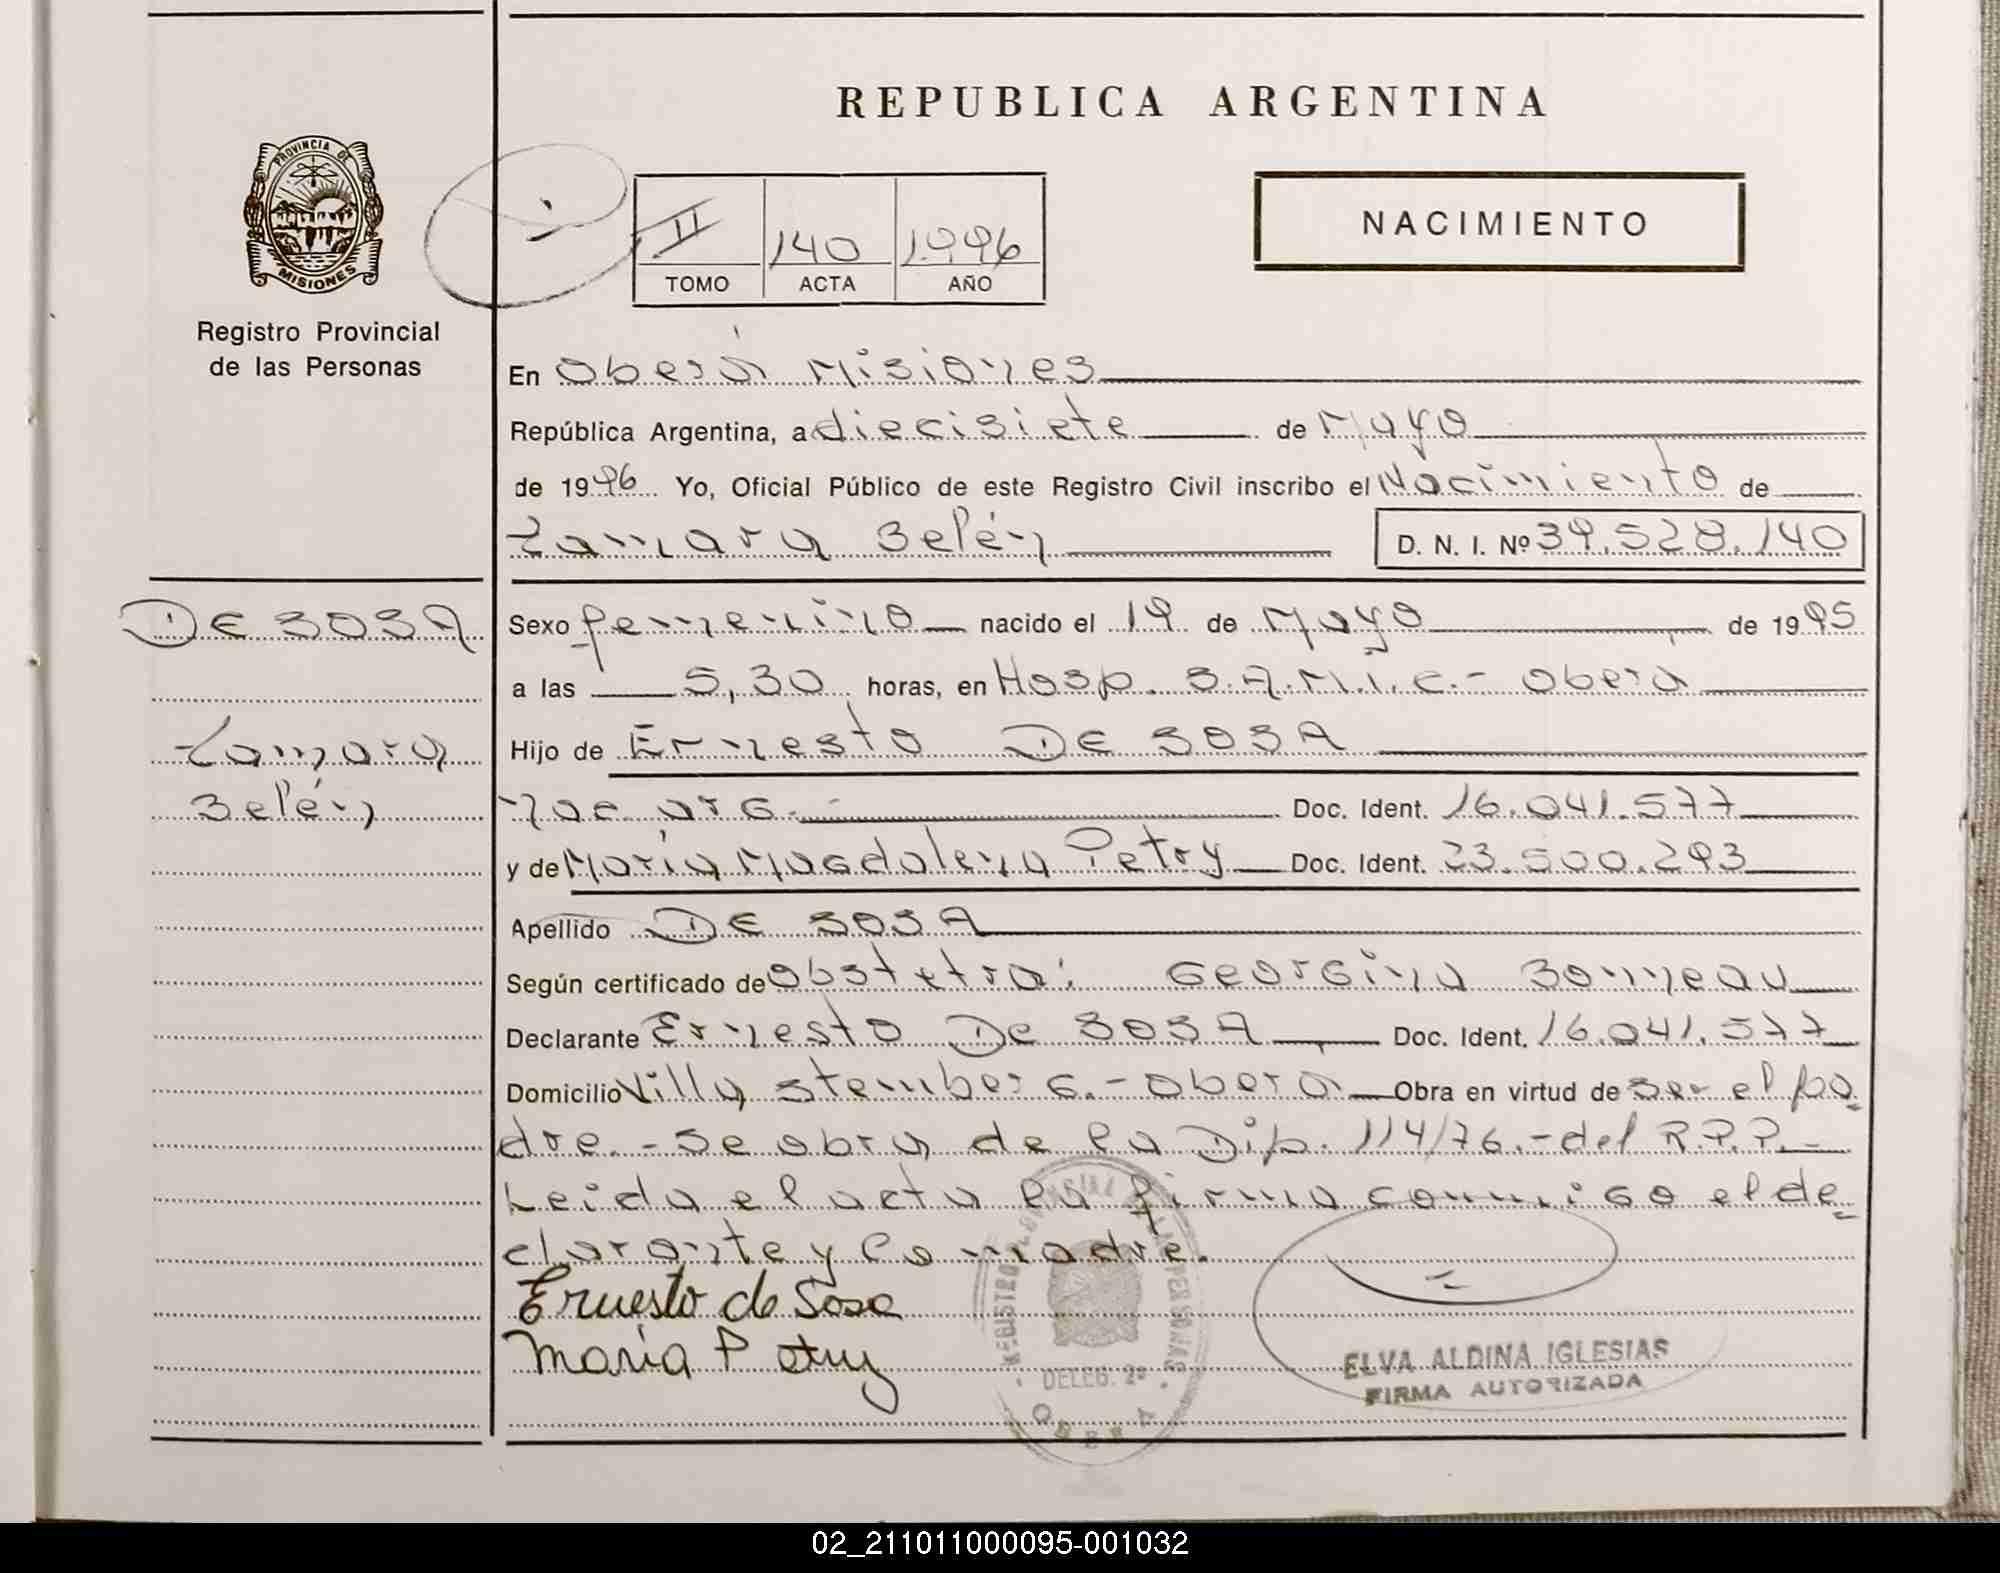 REPUBLICA ARGENTINA
PROVINCIA DE
MISIONES
Registro Provincial
de las Personas
II 140 1.996
TOMO ACTA AÑO
NACIMIENTO
En Oberá Misiones
República Argentina, a diecisiete de Mayo
de 1996 Yo, Oficial Público de este Registro Civil inscribo el Nacimiento de
Tamara Belén D. N. I. Nº 39.528.140
DE SOSA
Tamara
Belén
Sexo femenino nacido el 19 de Mayo de 1995
a las 5,30 horas, en Hosp. S.A.M.I.C.- Oberá
Hijo de Ernesto DE SOSA
Doc. Ident. 16.041.577
y de María Magdalena Petry Doc. Ident. 23.500.293
Apellido DE SOSA
Según certificado de Obstetra: Georgina Bonneau
Declarante Ernesto De SOSA Doc. Ident. 16.041.577
Domicilio Villa Stemberg.- Oberá Obra en virtud de ser el pa
dre.- Se obra de la Dip. 114/76.- del R.P.P.
Leida el acta la firma conmigo el de
clarante y la madre.
Ernesto de Sosa
María Petry
REGISTRO PROVINCIAL DE LAS PERSONAS
DELEG. 2ª
OBERA
ELVA ALDINA IGLESIAS
FIRMA AUTORIZADA
02_211011000095-001032